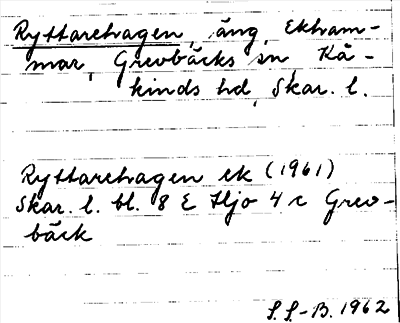 Ryttarehagen, äng, Ekham-
mar, Grevbäcks sn Kå-
kinds hd, Skar. l.
Ryttarehagen ek (1961)
Skar. l. bl. 8 E Hjo 4 c Grev-
bäck
S.S.-B. 1962